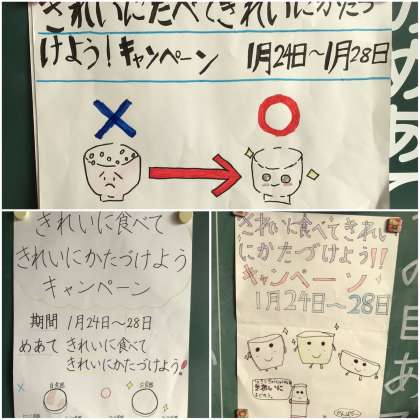 きれいにたべてきれいにかたづ
けよう！キャンペーン 1月24日〜1月28日
めあて
きれいに食べて
きれいにかたづけよう
キャンペーン
期間 1月24日〜28日
めあて きれいに食べて
きれいにかたづけよう！
きれいに食べてきれい
にかたづけよう!!
キャンペーン
1月24日〜28日
きれいに
の目あ